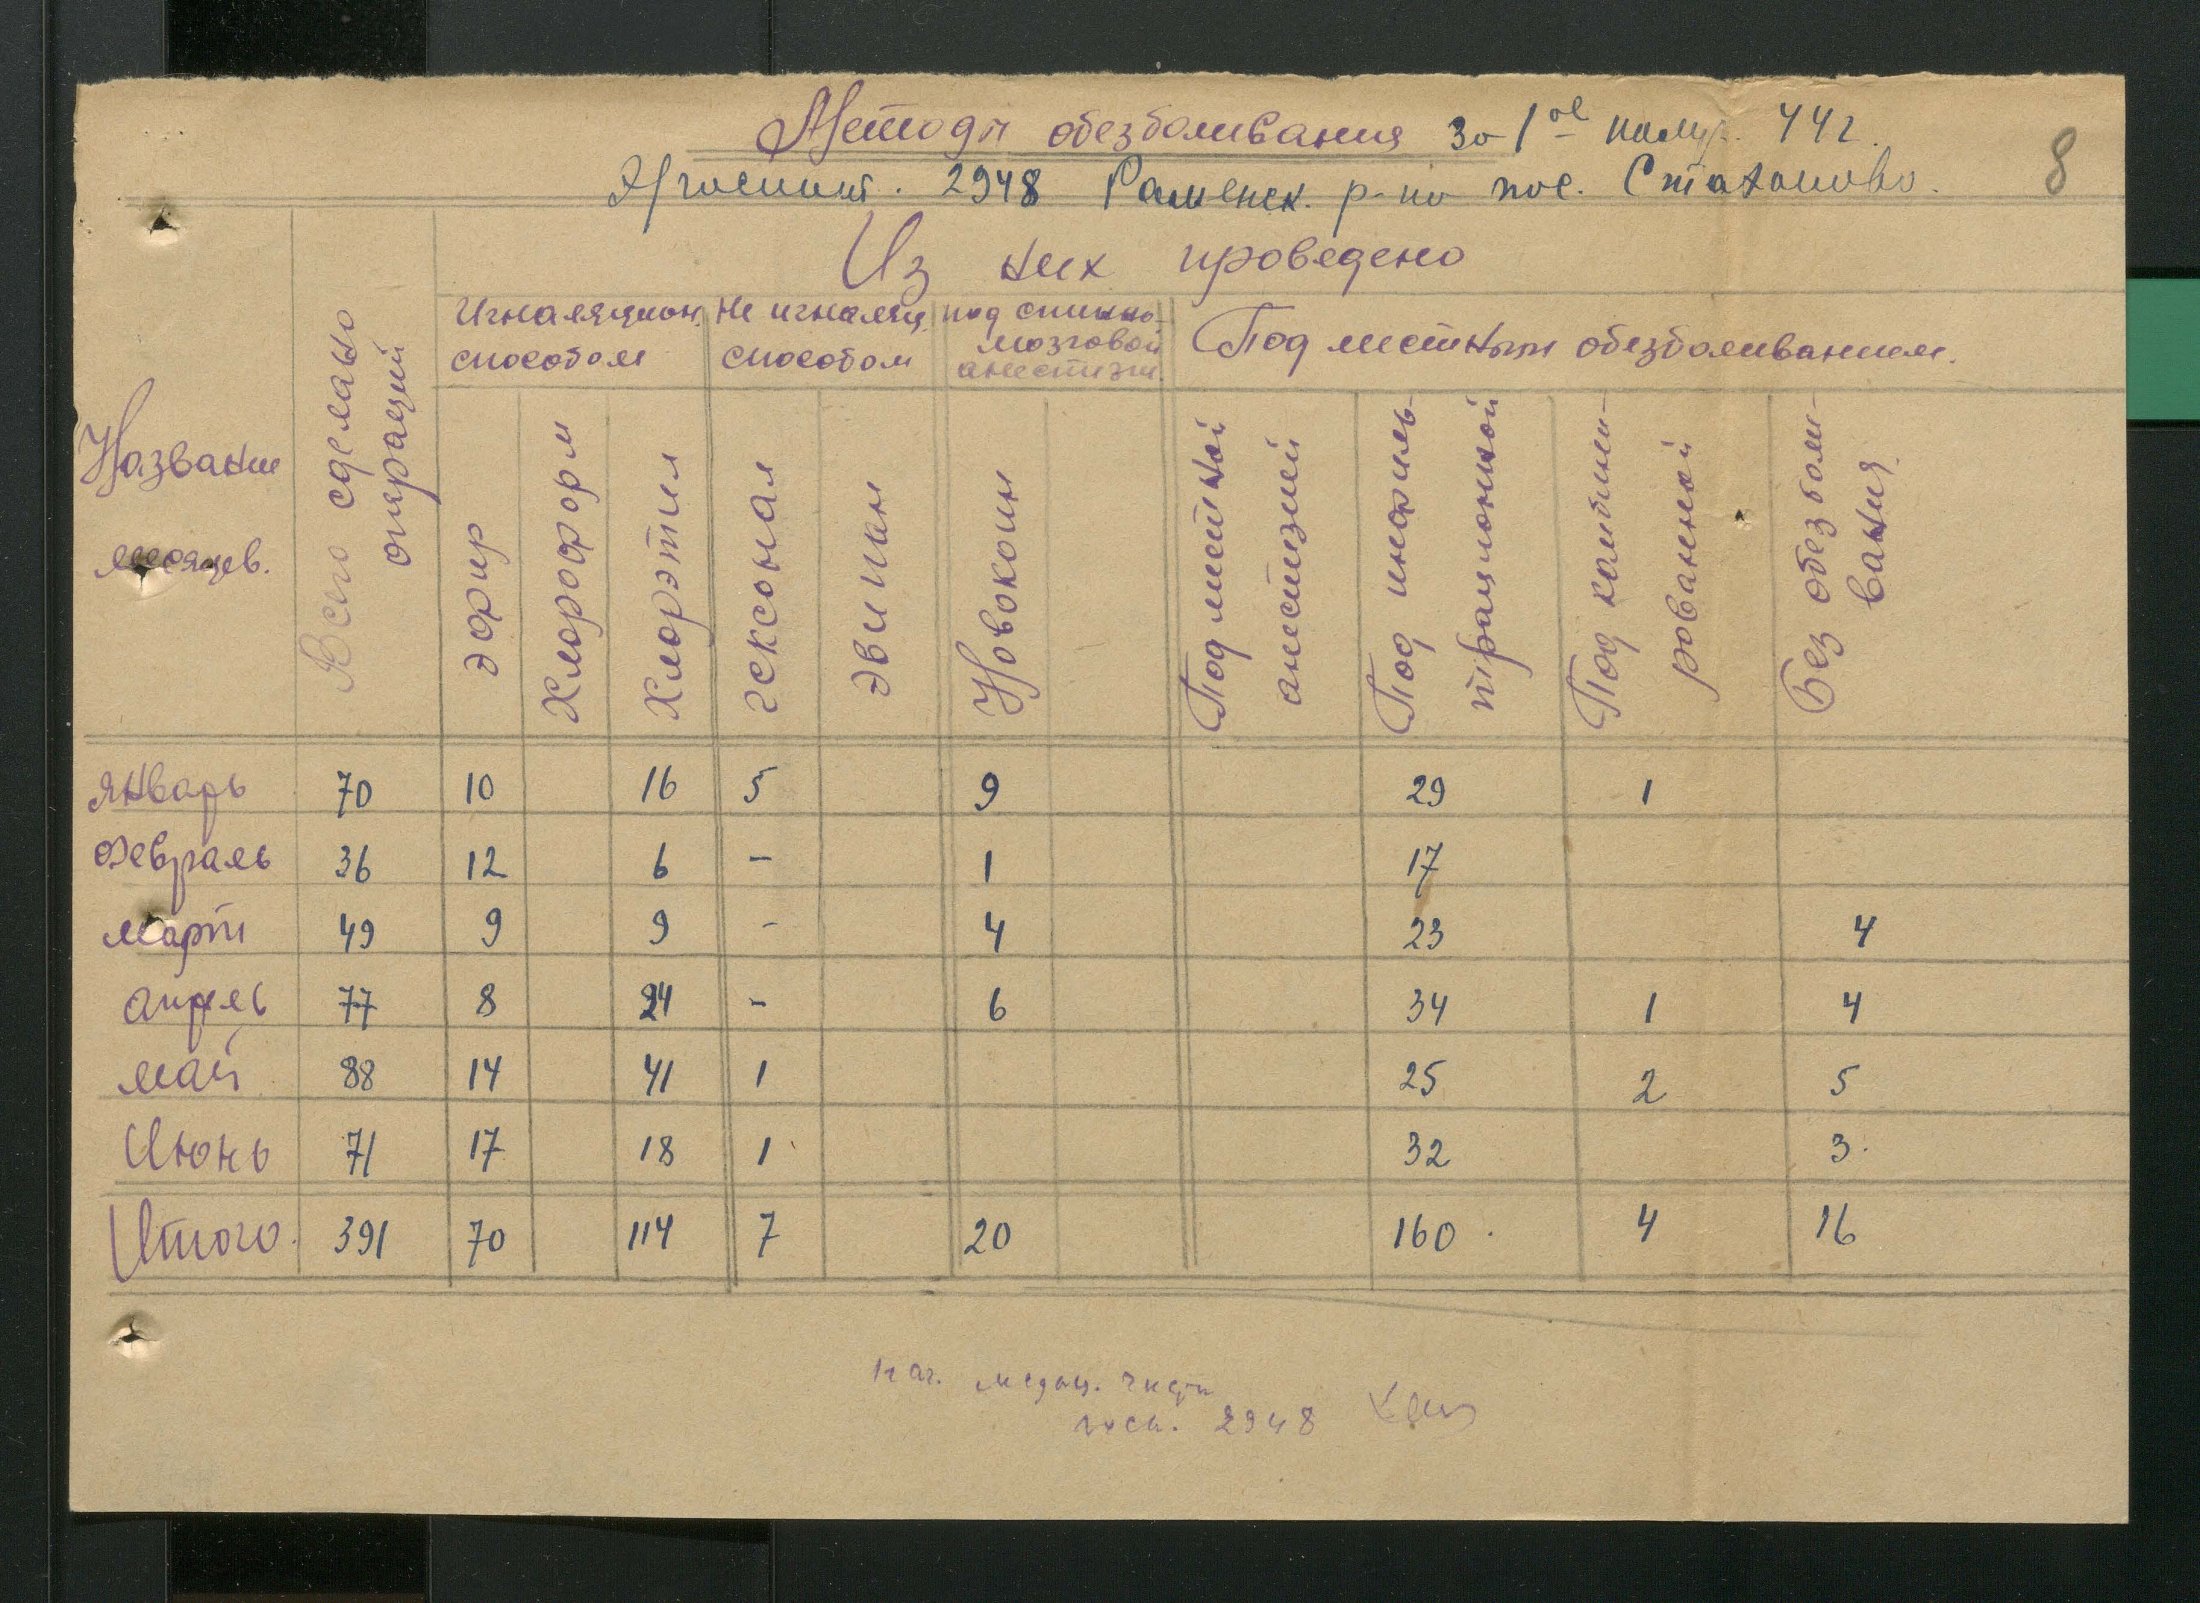 Методы обезболивания за 1ое полуг. 44г.
8
Эвгоспит. 2948 Раменск. р-на пос. Стаханово.
Название месяцев.
Всего сделано операций
Из них проведено
Игналяцион. способом
Не игналяц. способом
под спинно-мозговой анестезии
Под местным обезболиванием.
Эфир
Хлороформ
Хлорэтил
гексонал
Эвипан
Новокоин
Под местной анестезией
Под инфиль-трационной
Под комбини-рованной
Без обезболи-вания.
Январь 70 10 16 5 9 29 1
Февраль 36 12 6 - 1 17
март 49 9 9 - 4 23 4
апрель 77 8 24 - 6 34 1 4
май 88 14 41 1 25 2 5
Июнь 71 17 18 1 32 3.
Итого. 391 70 114 7 20 160. 4 16
Нач. медиц. части
госп. 2948